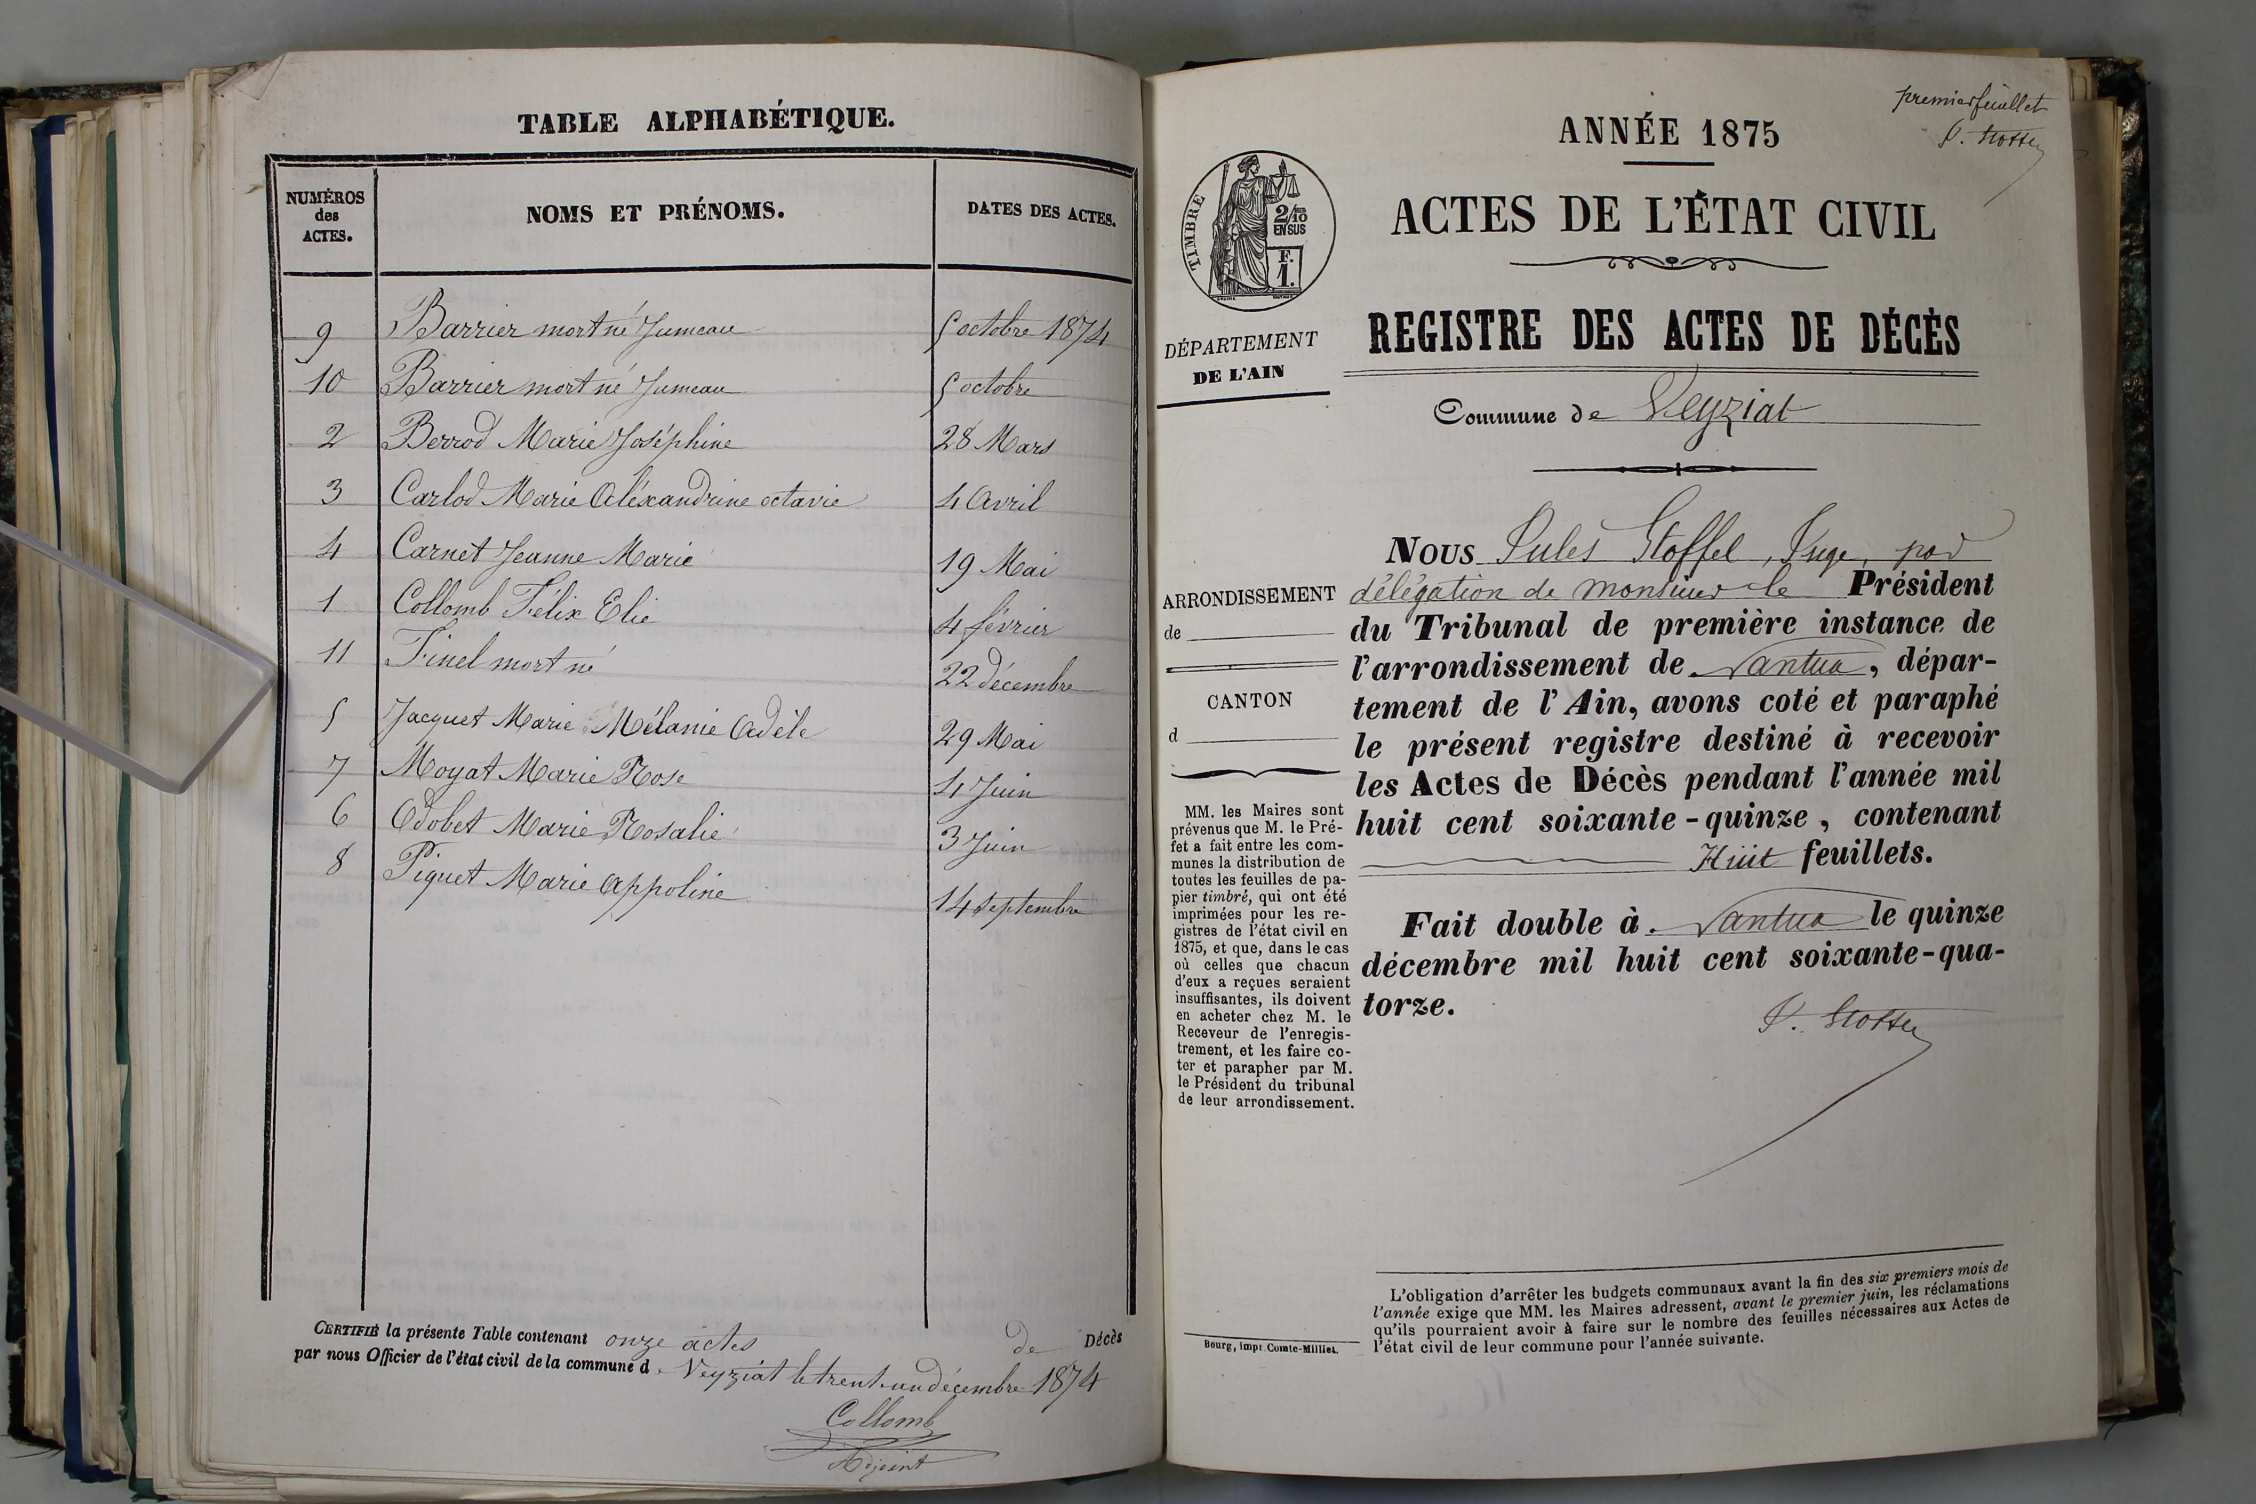 TABLE ALPHABÉTIQUE.
NUMÉROS des ACTES. NOMS ET PRÉNOMS. DATES DES ACTES.
9 Barrier mort né Jumeau 5 octobre 1874
10 Barrier mort né Jumeau 5 octobre
2 Berrod Marie Joséphine 28 Mars
3 Carlod Marie Aléxandrine octavie 4 Avril
4 Carnet Jeanne Marie 19 Mai
1 Collomb Félix Elie 4 février
11 Finel mort né 22 décembre
5 Jacquet Marie Mélanie Adèle 29 Mai
7 Moyat Marie Rose 4 Juin
6 Odobet Marie Rosalie 3 Juin
8 Piquet Marie Appoline 14 septembre
CERTIFIÉ la présente Table contenant onze actes de Décès
par nous Officier de l'état civil de la commune d Veyziat le trent-un décembre 1874
Collomb
Adjoint
premier feuillet
J. Stoffel
ANNÉE 1875
ACTES DE L'ÉTAT CIVIL
TIMBRE
2/10
EN SUS
F.
1.
REGISTRE DES ACTES DE DÉCÈS
DÉPARTEMENT
DE L'AIN
Commune de Veyziat
ARRONDISSEMENT
de
CANTON
d
MM. les Maires sont
prévenus que M. le Pré-
fet a fait entre les com-
munes la distribution de
toutes les feuilles de pa-
pier timbré, qui ont été
imprimées pour les re-
gistres de l'état civil en
1875, et que, dans le cas
où celles que chacun
d'eux a reçues seraient
insuffisantes, ils doivent
en acheter chez M. le
Receveur de l'enregis-
trement, et les faire co-
ter et parapher par M.
le Président du tribunal
de leur arrondissement.
NOUS Jules Stoffel, Juge, par
délégation de monsieur le Président
du Tribunal de première instance de
l'arrondissement de Nantua, dépar-
tement de l'Ain, avons coté et paraphé
le présent registre destiné à recevoir
les Actes de Décès pendant l'année mil
huit cent soixante-quinze, contenant
Huit feuillets.
Fait double à Nantua le quinze
décembre mil huit cent soixante-qua-
torze.
J. Stoffel
Bourg, impr. Comte-Milliet.
L'obligation d'arrêter les budgets communaux avant la fin des six premiers mois de
l'année exige que MM. les Maires adressent, avant le premier juin, les réclamations
qu'ils pourraient avoir à faire sur le nombre des feuilles nécessaires aux Actes de
l'état civil de leur commune pour l'année suivante.